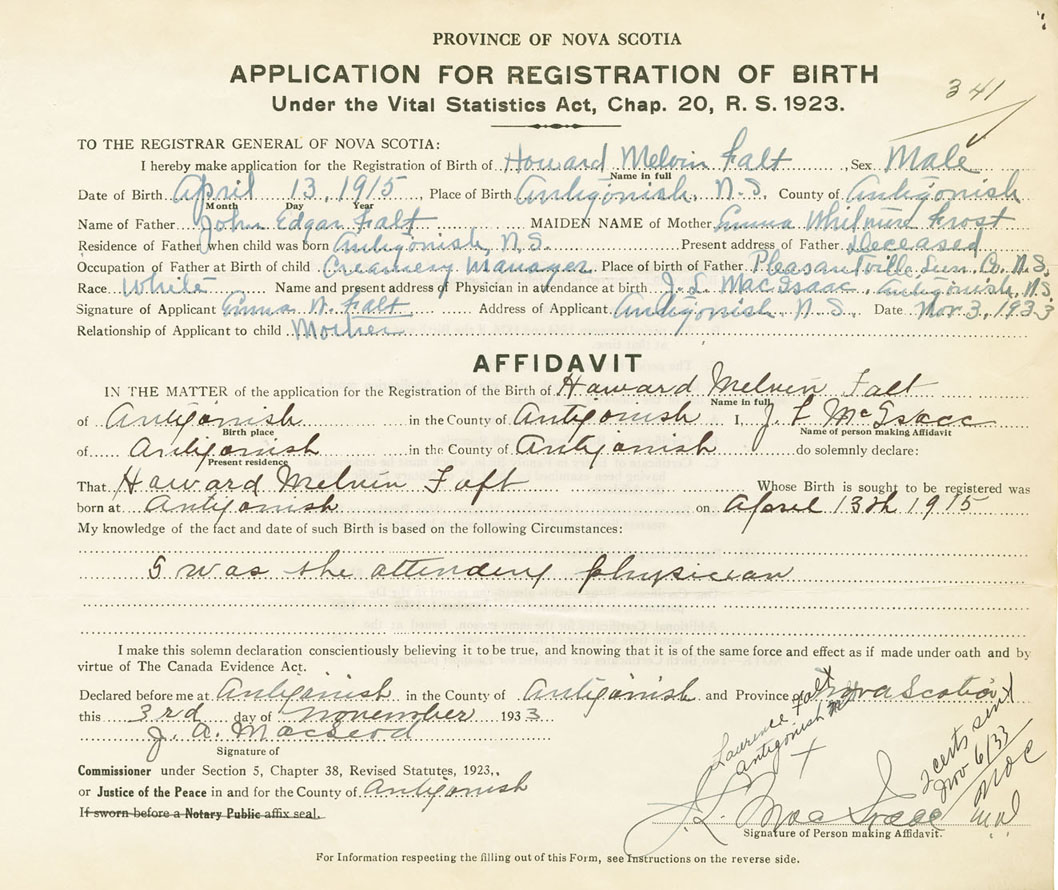 PROVINCE OF NOVA SCOTIA
APPLICATION FOR REGISTRATION OF BIRTH
Under the Vital Statistics Act, Chap. 20, R. S. 1923.
341
TO THE REGISTRAR GENERAL OF NOVA SCOTIA:
I hereby make application for the Registration of Birth of Howard Melvin Falt Sex Male
Name in full
Date of Birth April 13, 1915, Place of Birth Antigonish, N.S. County of Antigonish
Month Day Year
Name of Father John Edgar Falt MAIDEN NAME of Mother Emma Whitmire Frost
Residence of Father when child was born Antigonish, N.S. Present address of Father Deceased
Occupation of Father at Birth of child Creamery Manager Place of birth of Father Pleasantville Lun. Co. N.S.
Race White Name and present address of Physician in attendance at birth J. L. MacIsaac, Antigonish, N.S.
Signature of Applicant Emma W. Falt Address of Applicant Antigonish N.S., Date Nov. 3, 1933
Relationship of Applicant to child Mother
AFFIDAVIT
IN THE MATTER of the application for the Registration of the Birth of Howard Melvin Falt
Name in full
of Antigonish in the County of Antigonish I, J L McIsaac
Birth place Name of person making Affidavit
of Antigonish in the County of Antigonish do solemnly declare:
Present residence
That Howard Melvin Falt Whose Birth is sought to be registered was
born at Antigonish on April 13th 1915
My knowledge of the fact and date of such Birth is based on the following Circumstances:
I was the attending physician
I make this solemn declaration conscientiously believing it to be true, and knowing that it is of the same force and effect as if made under oath and by
virtue of The Canada Evidence Act.
Declared before me at Antigonish in the County of Antigonish and Province of Nova Scotia
this 3rd day of November 1933
J. A. MacLeod
Signature of
Commissioner under Section 5, Chapter 38, Revised Statutes, 1923,
or Justice of the Peace in and for the County of Antigonish
If sworn before a Notary Public affix seal.
Lawrence Falt
Antigonish
2 certs sent
Nov 6/33
J. L. MacIsaac
Signature of Person making Affidavit.
For Information respecting the filling out of this Form, see Instructions on the reverse side.